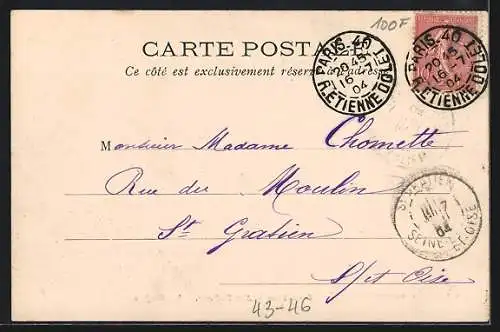 100F
CARTE POSTALE
Ce côté est exclusivement réservé à l'adresse
PARIS. 40
20 45
16 - 7
04
R. ETIENNE DOLET
PARIS. 40
20 45
16 - 7
04
R. ETIENNE DOLET
Monsieur Madame Chomette
Rue du Moulin
St Gratien
S/et Oise
7
04
SEINE-ET-OISE
43-46